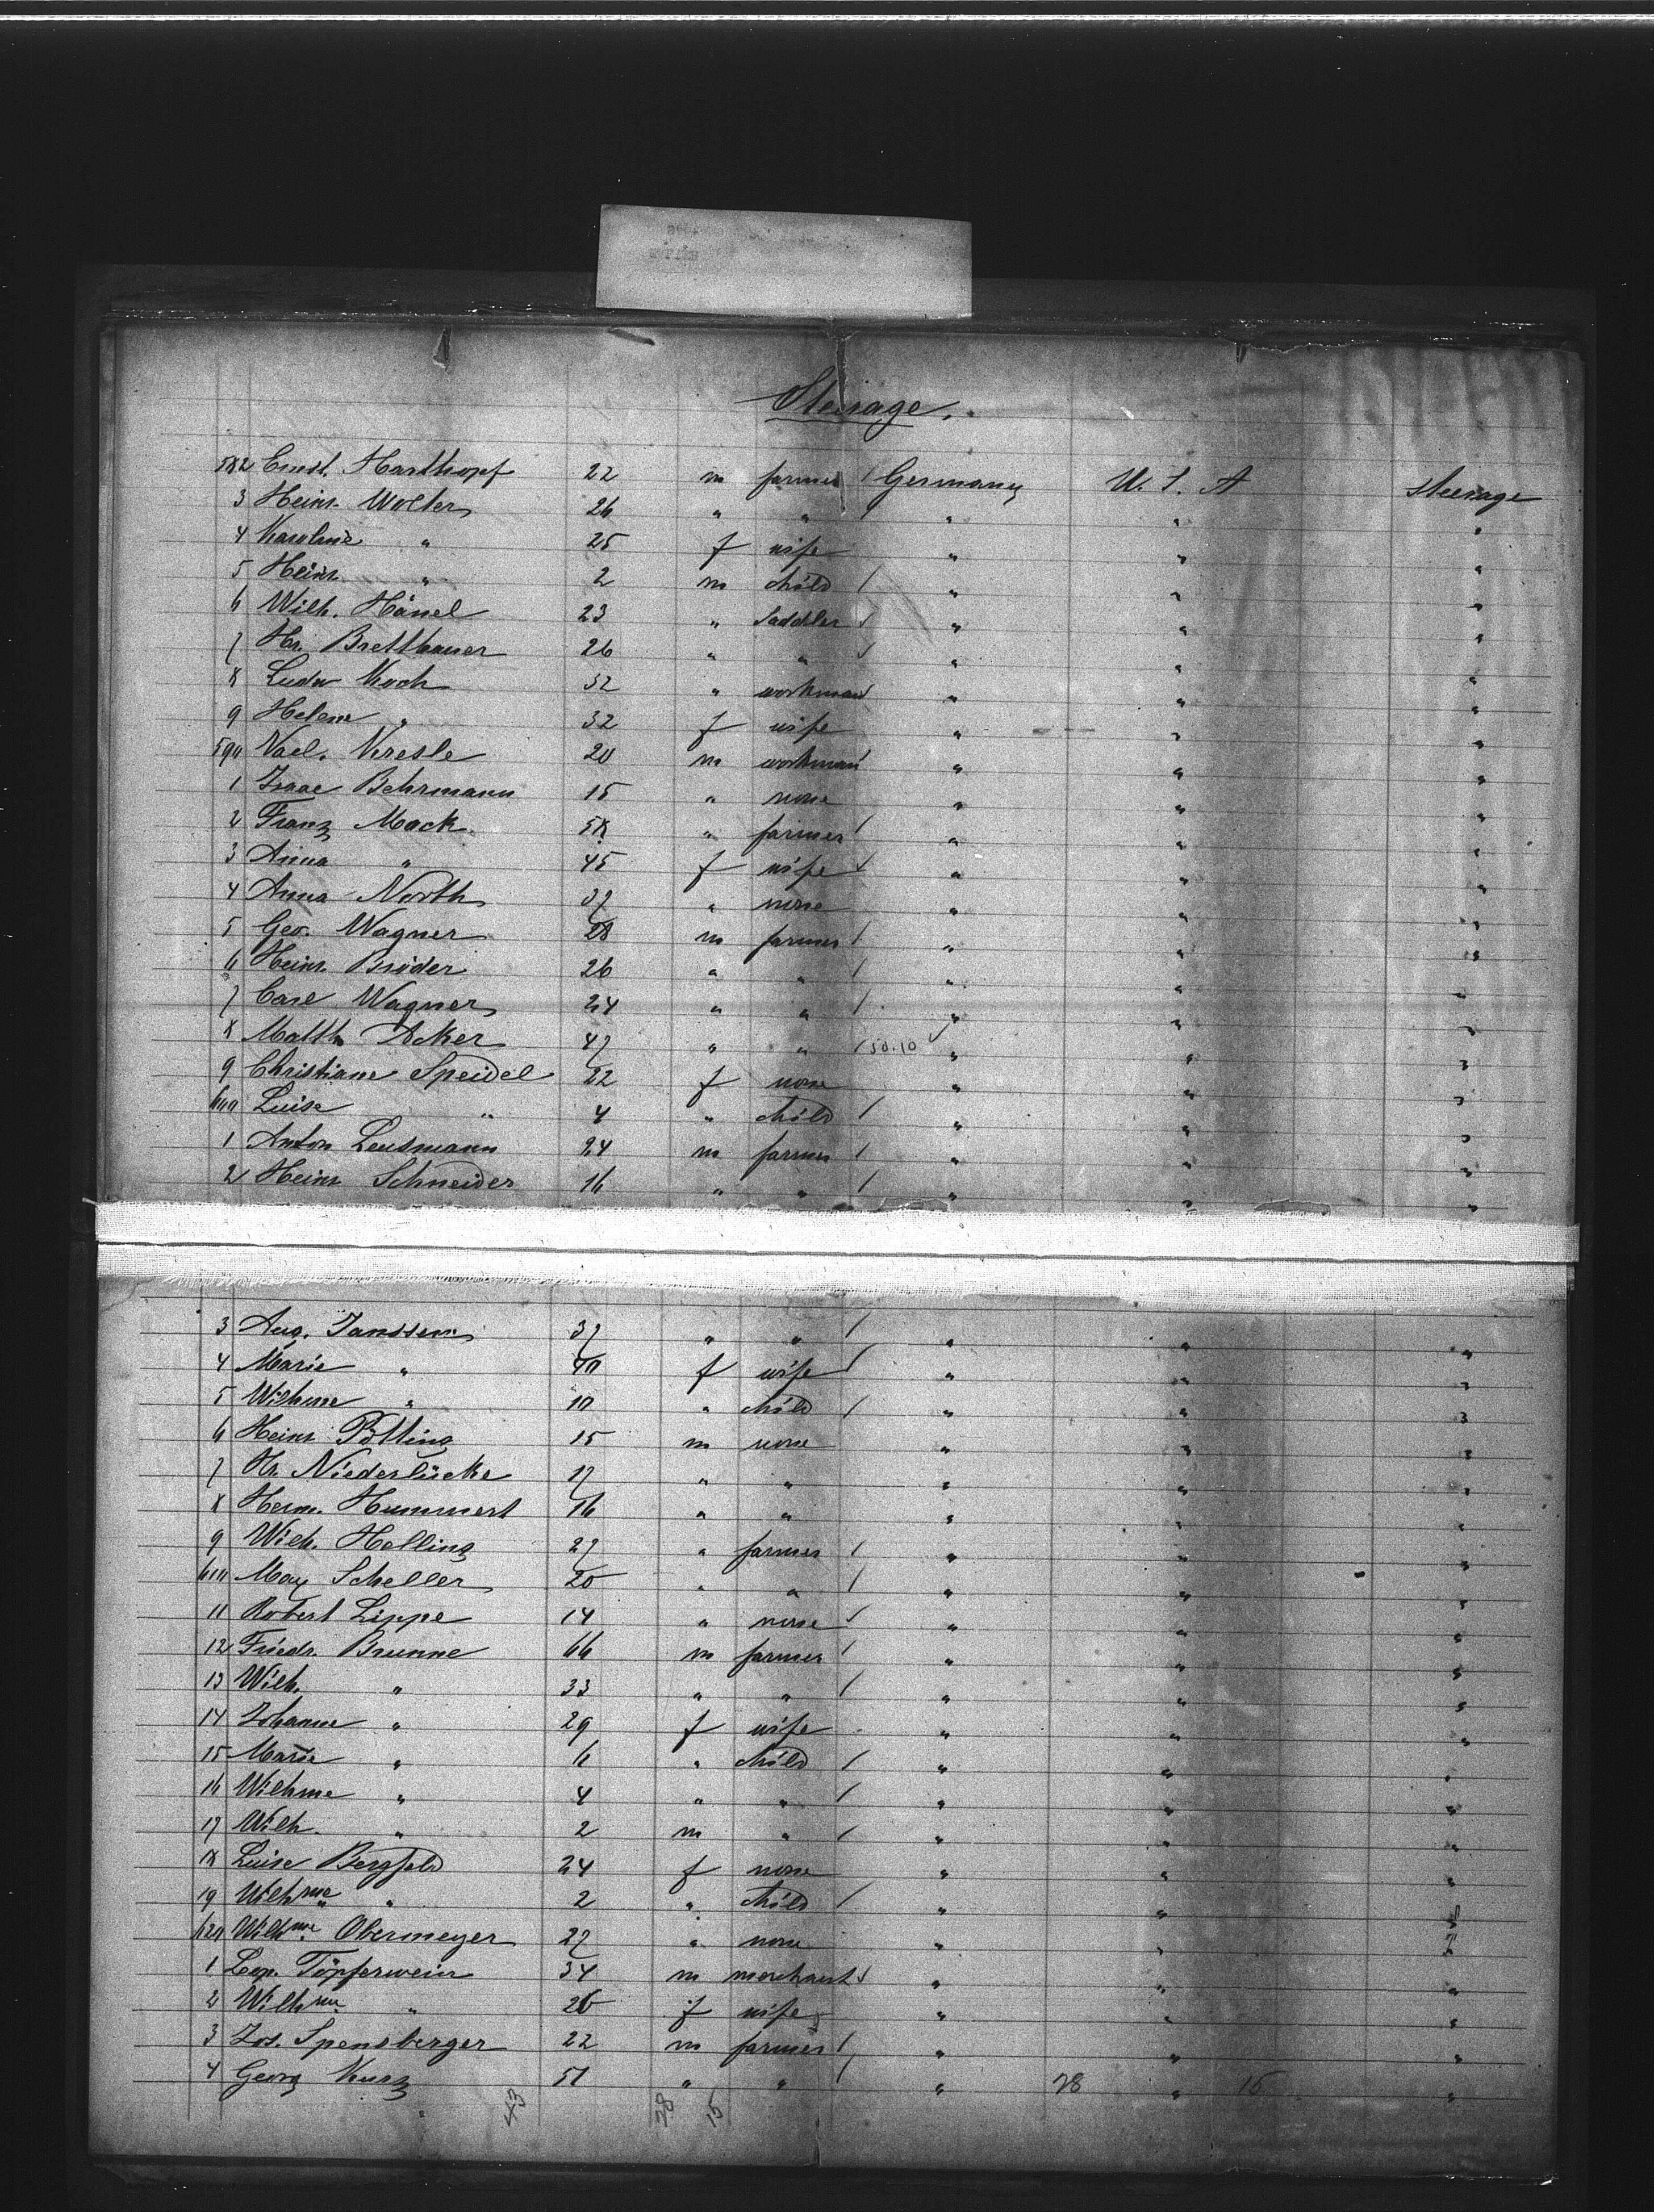 Steerage.
582 Ernst. Harthopf 22 m farmer / Germany U. S. A steerage
3 Heinr. Wolter 26 " " / " " "
4 Karoline " 25 f wife " " "
5 Heinr. " 2 m child / " " "
6 Wilh. Hänel 23 " Saddler / " " "
7 Hr. Bretthauer 26 " " / " " "
8 Ludw Koch 32 " workman / " " "
9 Helene " 32 f wife " " "
590 Kresle 20 m workman / " " "
1 Isaac Behrmann 15 " none " " "
2 Franz Mack 58 " farmer / " " "
3 Anna " 45 f wife / " " "
4 Anna North 37 " none " " "
5 Geo. Wagner 28 m farmer / " " "
6 Heinr. Bröder 26 " " / " " "
7 Carl Wagner 24 " " / " " "
8 Matth Acker 47 " " / 50.10 " " "
9 Christiane Speidel 22 f none " " "
600 Luise " 4 " child / " " "
1 Anton Leusmann 24 m farmer / " " "
2 Heinr Schneider 16 " " / " " "
3 Aug. Janssen 37 " " / " " "
4 Marie " 40 f wife / " " "
5 Wilhme " 10 " child / " " "
6 Heinr. Pölling 15 m none " " "
7 Hr. Niederlücke 17 " " " " "
8 Herm. Hummert 16 " " " " "
9 Wilh. Helling 27 " farmer / " " "
610 Max Scheller 20 " " / " " "
11 Robert Lippe 14 " none / " " "
12 Friedr. Brunne 66 m farmer / " " "
13 Wilh. " 33 " " / " " "
14 Johanne " 29 f wife " " "
15 Marie " 6 " child / " " "
16 Wilhme " 4 " " / " " "
17 Wilh. " 2 m " / " " "
18 Luise Bergfeld 24 f none " " "
19 Wilhme " 2 " child / " " "
620 Wilhme Obermeyer 27 " none " " "
1 Leop. Töpferwein 34 m merchant / " " "
2 Wilhme " 26 f wife " " "
3 Jos. Spensberger 22 m farmer / " " "
4 Georg Kurz 51 " " / " 28 " 15 "
43 28 15